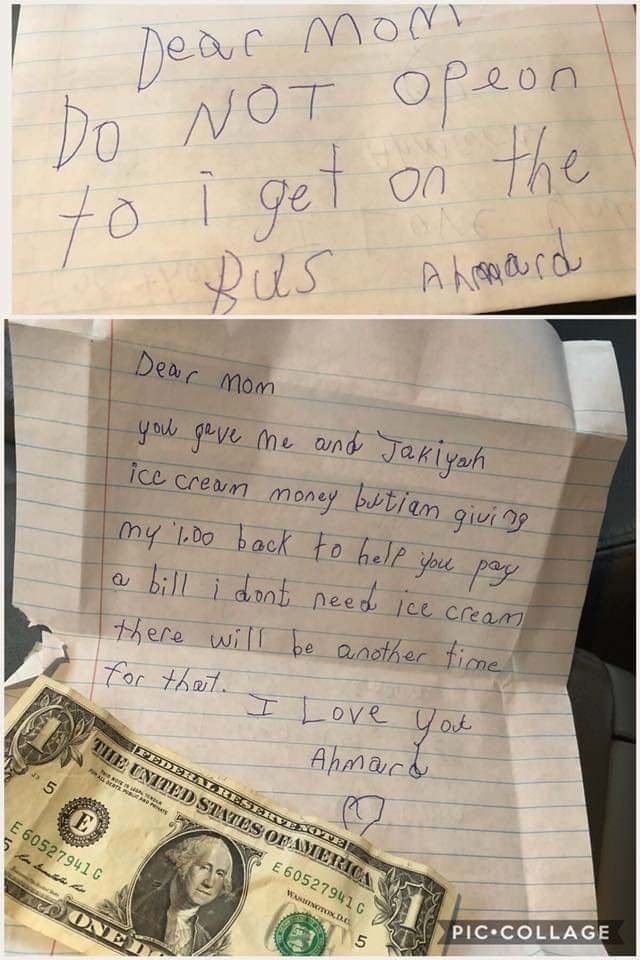 Dear mom
Do NOT opeon
to i get on the
Bus Ahmard
Dear mom
you gave me and Jakiyah
ice cream money butiam giving
my 1.00 back to help you pay
a bill i dont need ice cream
there will be another time
for that.
I Love you
Ahmard
FEDERAL RESERVE NOTE
THE UNITED STATES OF AMERICA
THIS NOTE IS LEGAL TENDER
FOR ALL DEBTS, PUBLIC AND PRIVATE
5
E
E 60527941 G
E 60527941 G
WASHINGTON, D.C.
5
5
1
1
ONE
PIC•COLLAGE